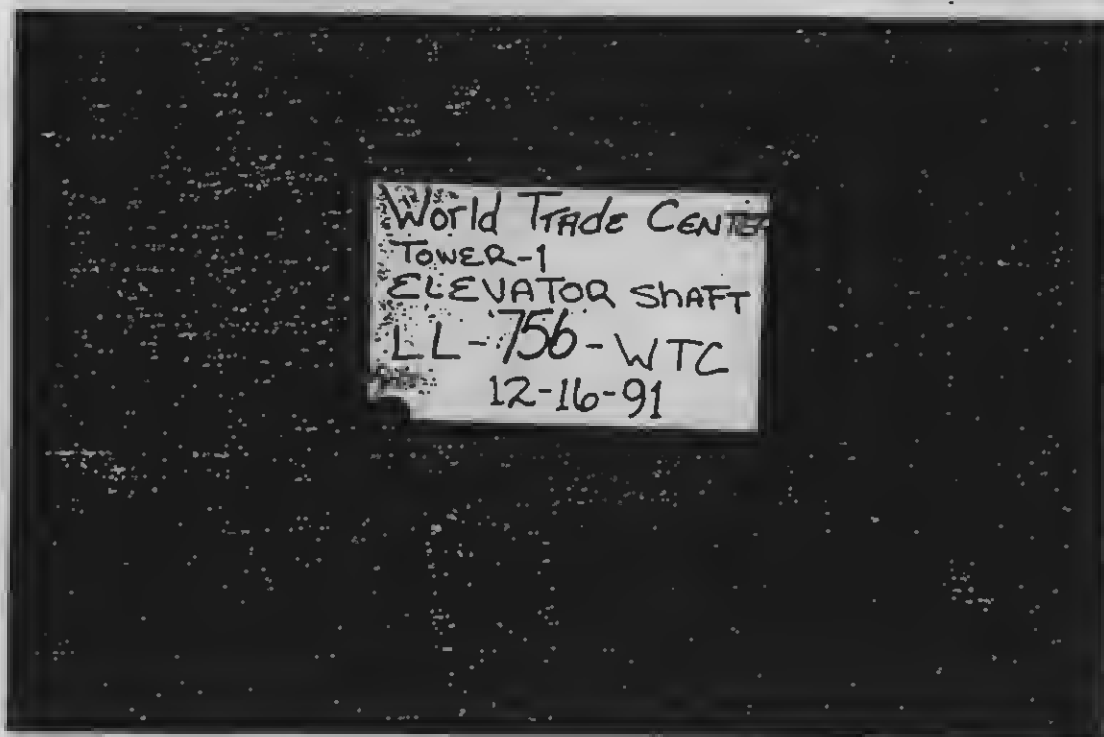 World Trade Center
Tower-1
ELEVATOR ShAFT
LL-756-WTC
12-16-91